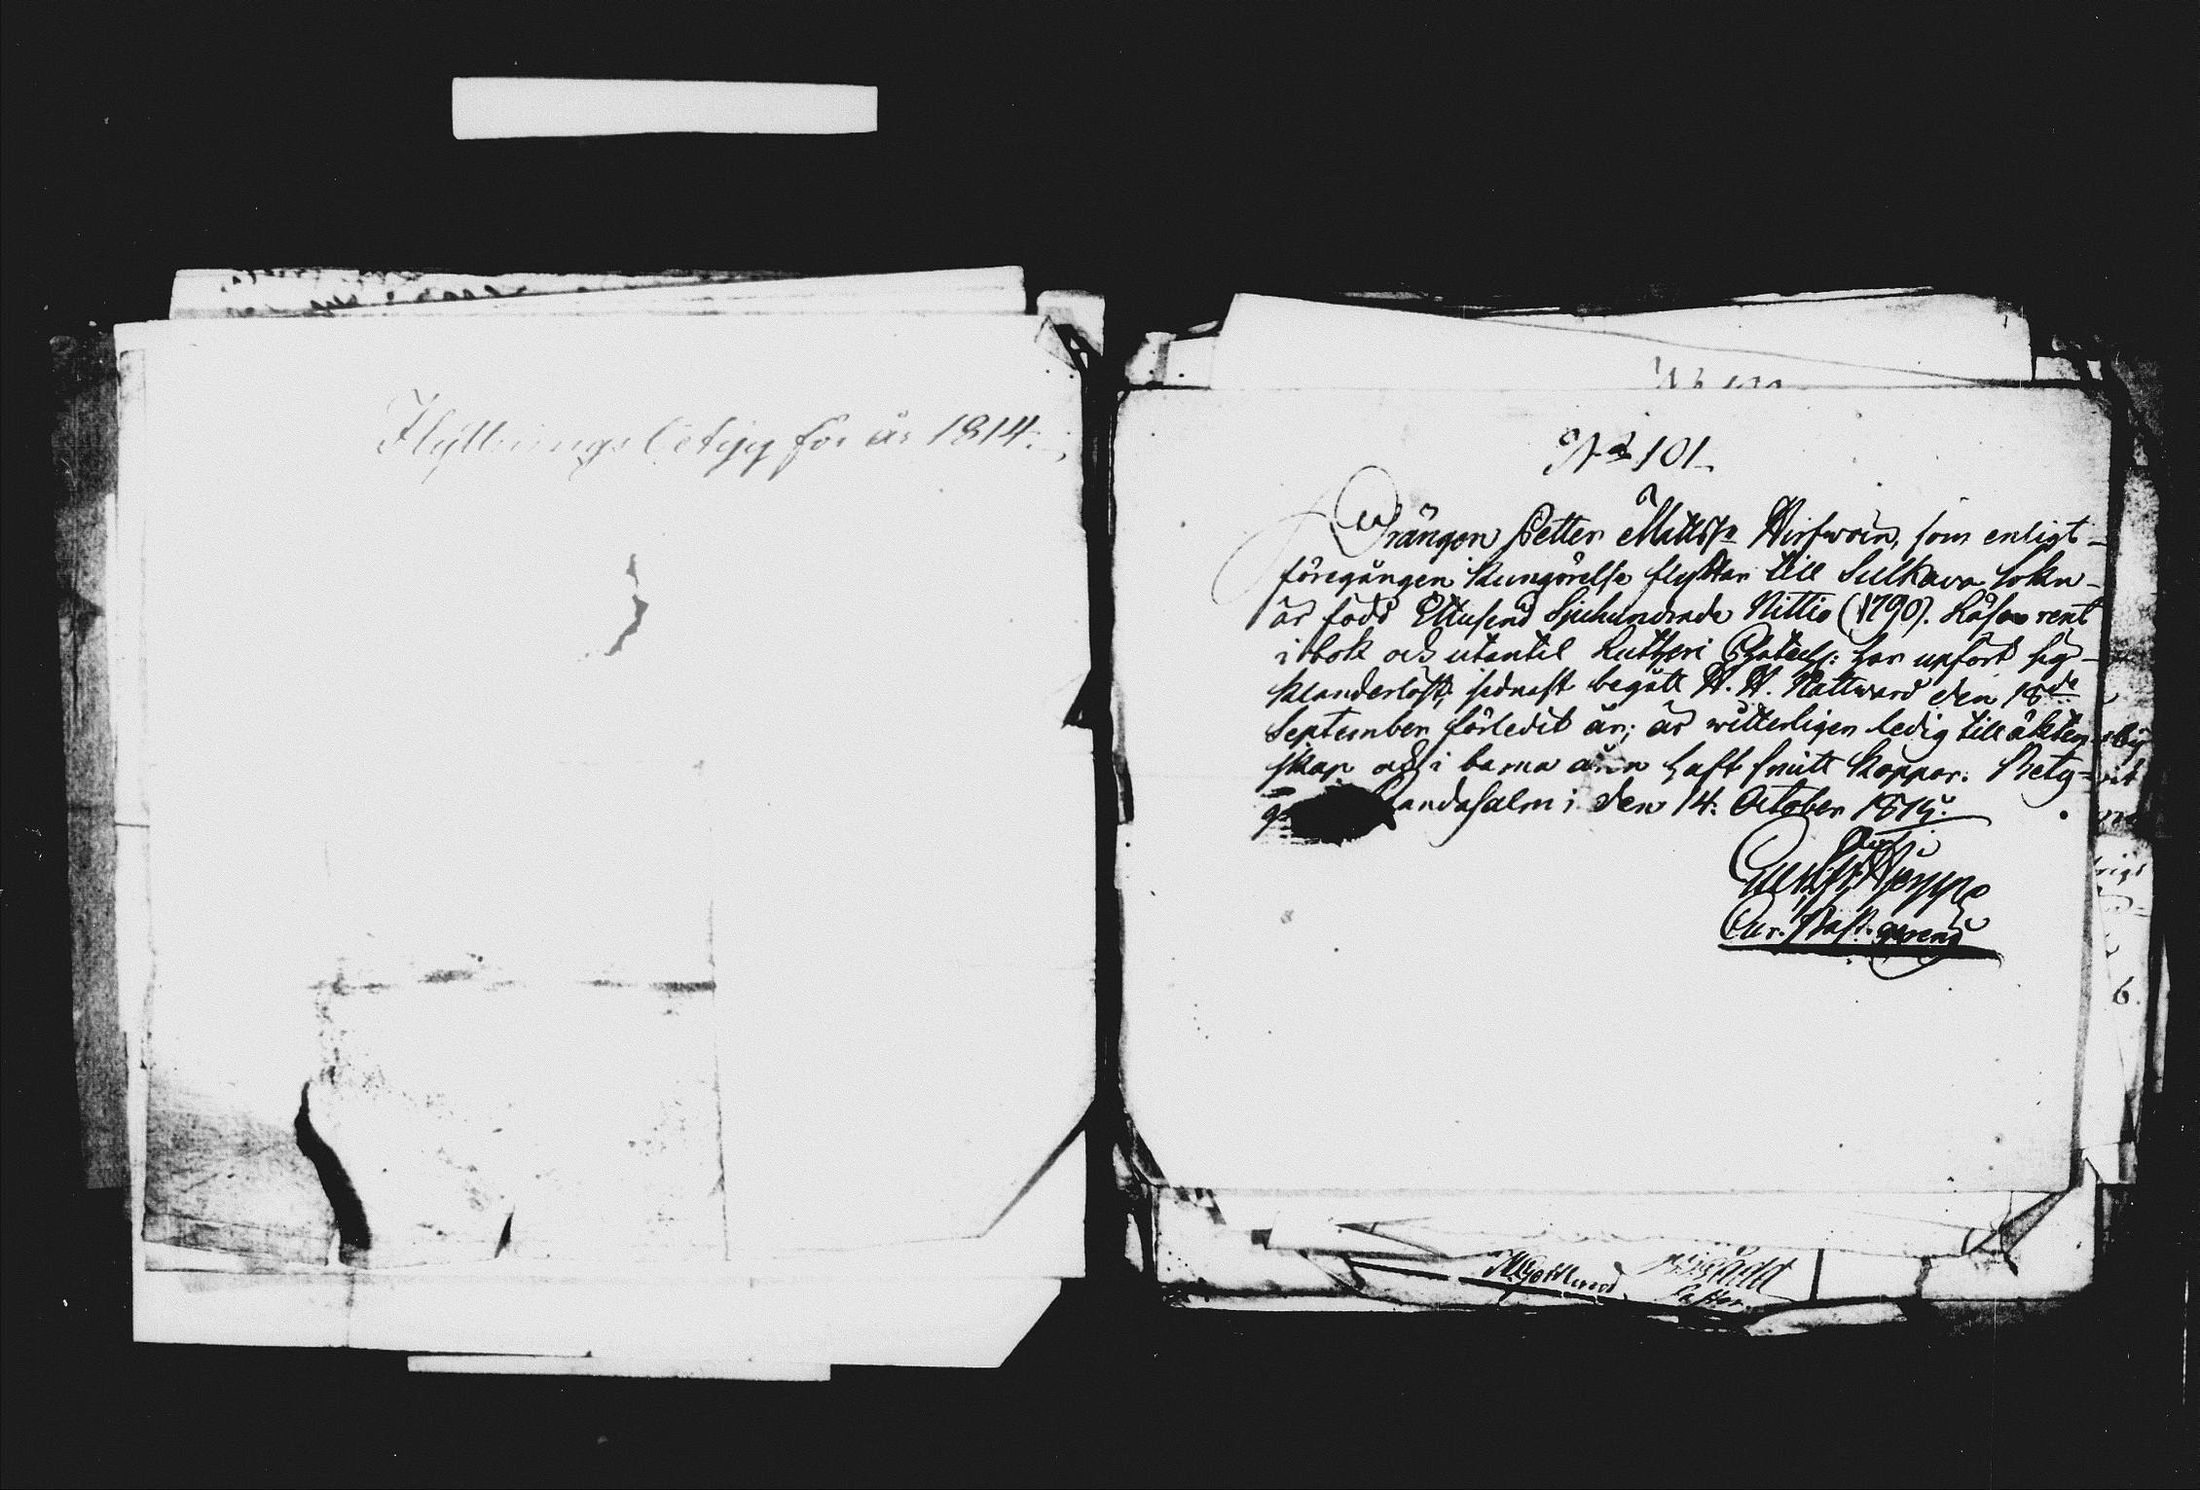 Flyttningsbetyg för år 1814.
No 101
Drängen Petter Mattss. Hirfwoin, som enligt
föregången Kungörelse flyttar till Sulkava sokn
är född Ettusend Sjuhundrade Nittio (1790). Läser rent
i bok och utantil Lutheri Chateches: har upfört sig
klanderlöst; sednast begått H. H. Nattward den 18de
September förledit år; är witterligen ledig till äkten-
skap och i barna åren haft smitt koppor. Bety-
andasalmi den 14. October 1814.
Gust.
Cur. Past. gerens
6.